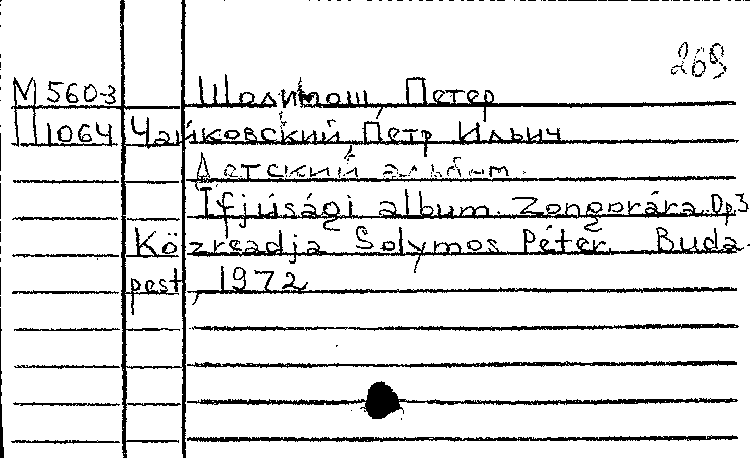 269
М 5603 Шолимош, Петер
П1064 Чайковский, Петр Ильич
Детский альбом.
Ifjúsági album. Zongorára. Op 3
Közreadja Solymos Péter. Buda-
pest, 1972